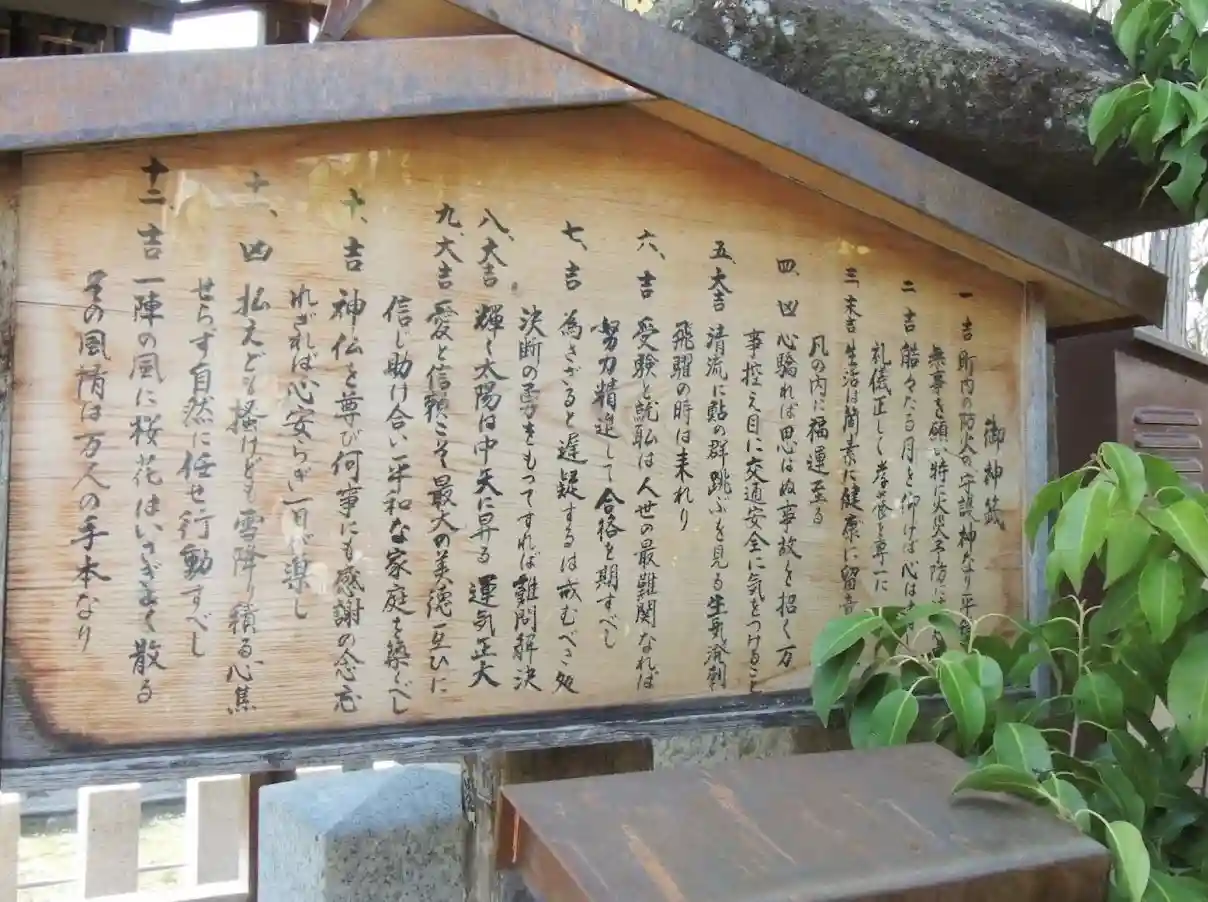 御神籤
一 吉 町内の防火の守護神なり平
無事を願い特に火災予防に
二 吉 皓々たる月を仰げば心は
礼儀正しく孝養を専一に
三、末吉 生活は簡素に健康に留意
凡の内に福運至る
四、凶 心驕れば思はぬ事故を招く万
事控え目に交通安全に気をつけること
五、大吉 清流に鮎の群跳ぶを見る生気溌剌
飛躍の時は来れり
六、吉 受験と就職は人世の最難関なれば
努力精進して合格を期すべし
七、吉 為さざると遅疑するは戒むべき処
決断の勇をもってすれば難問解決
八、大吉 輝く太陽は中天に昇る 運気正大
九、大吉 愛と信頼こそ最大の美徳互ひに
信じ助け合い平和な家庭を築くべし
十、吉 神仏を尊び何事にも感謝の念忘
れざれば心安らぎ一日が楽し
十一、凶 払えども掻けども雪降り積る心焦
せらず自然に任せ行動すべし
十二 吉 一陣の風に桜花はいさぎよく散る
その風情は万人の手本なり